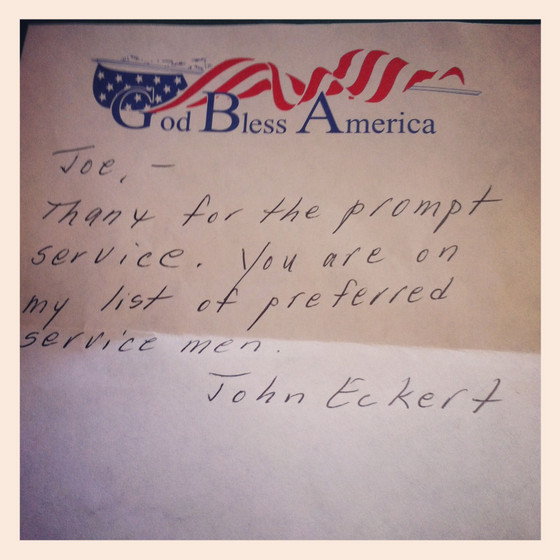 God Bless America
Joe, -
Thank for the prompt
service. You are on
my list of preferred
service men.
John Eckert